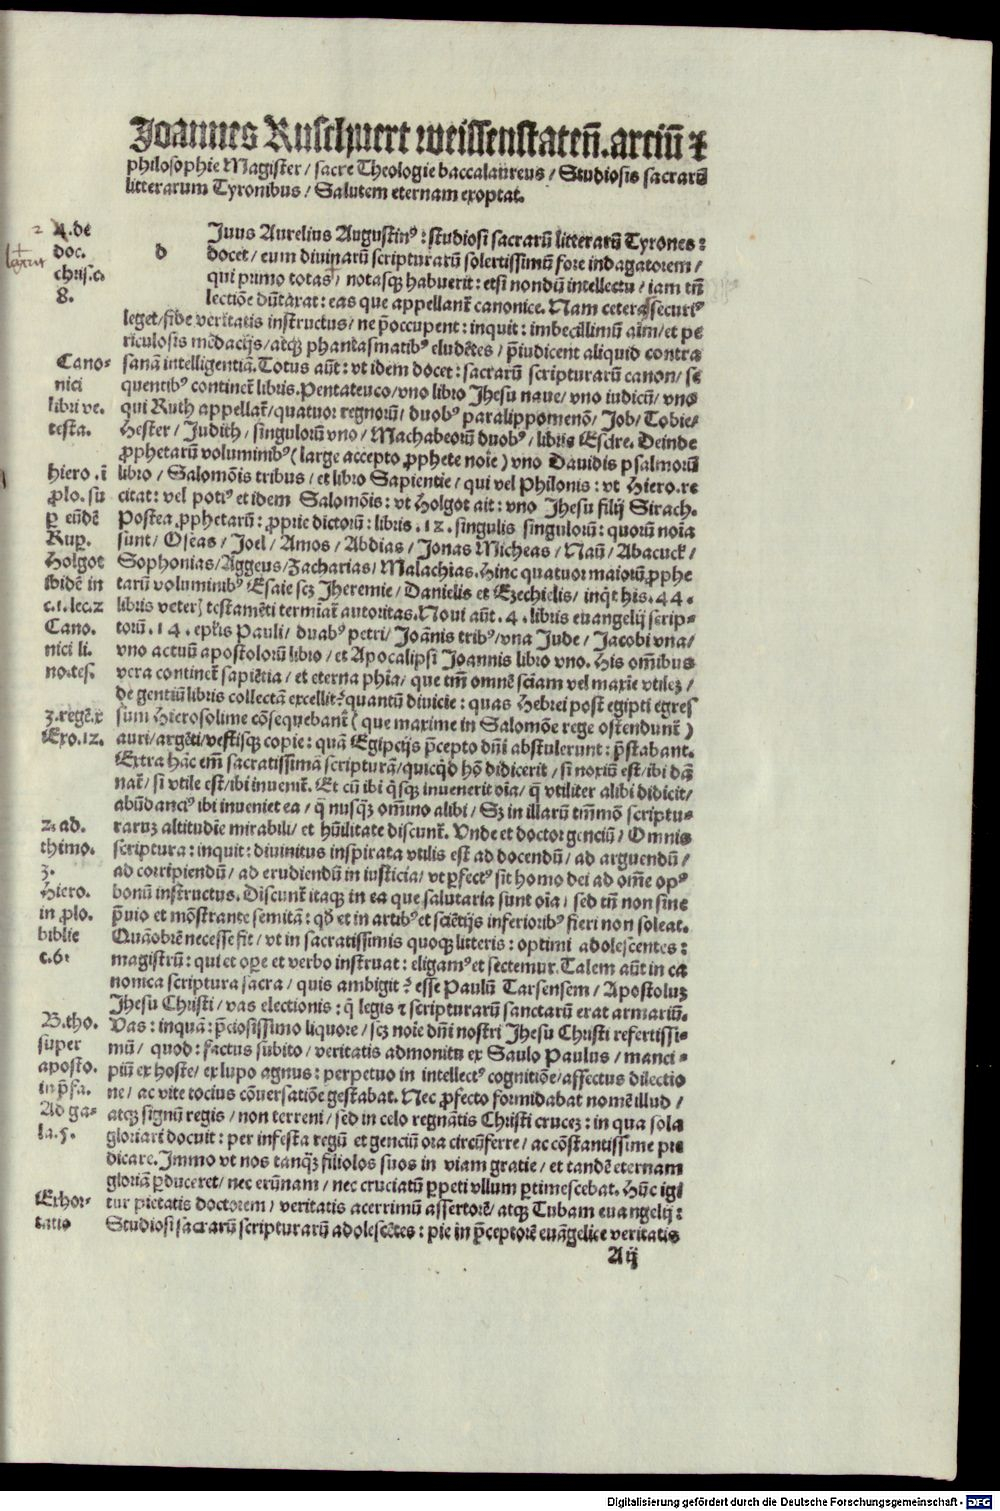 Joannes Ruschuert weissenstateñ. arciũ ⁊
philosophie Magister / sacre Theologie baccalaureus / Studiosis sacrarũ
litterarum Tyronibus / Salutem eternam exoptat.
2 4. de
doc.
chris. c.
8.
d Juus Aurelius Augustinꝰ : studiosi sacrarũ litterarũ Tyrones :
docet / eum divinarũ scripturarũ solertissimũ fore indagatorem /
qui primo totas / notasqꝫ habuerit : etsi nondũ intellectu / iam tñ
lectiõe dũtaxat : eas que appellant̃ canonice. Nam ceteras securiꝰ
leget / fide veritatis instructus / ne p̃occupent : inquit : imbecillimũ aĩm / et pe
riculosis mẽdacijs / atqꝫ phantasmatibꝰ eludẽtes / p̃iudicent aliquid contra
Cano-
nici
libri ve.
testa.
sanã intelligentiã. Totus aũt : vt idem docet : sacrarũ scripturarũ canon / se
quentibꝰ continet̃ libris. Pentateuco / vno libro Jhesu naue / vno iudicũ / vno
qui Ruth appellat̃ / quatuor regnorũ / duobꝰ paralippomenõ / Job / Tobie /
Hester / Judith / singulorũ vno / Machabeorũ duobꝰ / libris Esdre. Deinde
ꝓphetarũ voluminibꝰ ( large accepto ꝓphete noĩe ) vno Dauidis psalmorũ
hiero. ĩ
ꝓlo. su
ꝑ eũdẽ
Rup.
Holgot
ibidẽ in
c. 1. lec. 2
libro / Salomõis tribus / et libro Sapientie / qui vel Philonis : vt Hiero. re
citat : vel potiꝰ et idem Salomõis : vt Holgot ait : vno Jhesu filij Sirach.
Postea ꝓphetarũ : ꝓprie dictorũ : libris . 12 . singulis singulorũ : quorũ noĩa
sunt / Oseas / Joel / Amos / Abdias / Jonas Micheas / Naũ / Abacuck /
Sophonias / Aggeus / Zacharias / Malachias. Hinc quatuor maiorũ ꝓphe
tarũ voluminibꝰ Esaie scꝫ Jheremie / Danielis et Ezechielis / inq̃t his . 44 .
libris veterꝭ testamẽti terminat̃ autoritas. Noui aũt . 4 . libris euangelij scrip-
Cano.
nici li.
no. tes.
torũ . 14 . ep̃lis Pauli / duabꝰ petri / Joãnis tribꝰ / vna Jude / Jacobi vna /
vno actuũ apostolorũ libro / et Apocalipsi Joannis libro vno. His om̃ibus
vera continet̃ sapiẽtia / et eterna phĩa / que tm̃ omnẽ sciam vel maxĩe vtilẽ /
de gentiũ libris collectã excellit : quantũ diuicie : quas Hebrei post egipti egres
3. regẽ. x
Exo. 12.
sum Hierosolime cõsequebant̃ ( que maxime in Salomõe rege ostendunt̃ )
auri / argẽti / vestisqꝫ copie : quã Egipcijs p̃cepto dñi abstulerunt : p̃stabant.
Extra hãc em̃ sacratissimã scripturã / quicq̃d hõ didicerit / si noxiũ est / ibi dã
nat̃ / si vtile est / ibi inuenit̃. Et cũ ibi q̃sqꝫ inuenerit oĩa / q̃ vtiliter alibi didicit /
abũdanciꝰ ibi inueniet ea / q̃ nusqꝫ om̃ino alibi / Sꝫ in illarũ tm̃mõ scriptu-
2. ad.
thimo.
3.
raruꝫ altitudĩe mirabili / et hũilitate discunt̃. Vnde et doctor genciũ / Omnis
scriptura : inquit : diuinitus inspirata vtilis est ad docendũ / ad arguendũ /
ad corripiendũ / ad erudiendũ in iusticia / vt ꝑfectꝰ sit homo dei ad om̃e opꝰ
Hiero.
in ꝓlo.
biblie
c. 6.
bonũ instructus. Discunt̃ itaqꝫ in ea que salutaria sunt oĩa / sed tñ non sine
p̃uio et mõstrante semitã : qđ et in artibꝰ et sciẽtijs inferioribꝰ fieri non soleat.
Quãobrẽ necesse fit / vt in sacratissimis quoqꝫ litteris : optimi adolescentes :
magistrũ : qui et oꝑe et verbo instruat : eligamꝰ et sectemur. Talem aũt in ca
nonica scriptura sacra / quis ambigit ? esse Paulũ Tarsensem / Apostoluꝫ
Jhesu Christi / vas electionis : q̃ legis ⁊ scripturarũ sanctarũ erat armariũ.
B. tho.
super
aposto.
in p̃fa.
Vas : inquã : p̃ciosissimo liquore / scꝫ noĩe dñi nostri Jhesu Christi refertissi-
mũ / quod : factus subito / veritatis admonitu ex Saulo Paulus / manci-
piũ ex hoste / ex lupo agnus : perpetuo in intellectꝰ cognitiõe / affectus dilectio
ne / ac vite tocius cõuersatiõe gestabat. Nec ꝓfecto formidabat nomẽ illud /
Ad ga-
la. 5.
atqꝫ signũ regis / non terreni / sed in celo regnãtis Christi cruceꝫ : in qua sola
gloriari docuit : per infesta regũ et genciũ ora circũferre / ac cõstantissime pre
dicare. Immo vt nos tanqꝫ filiolos suos in viam gratie / et tandẽ eternam
gloriã ꝑduceret / nec erũnam / nec cruciatũ ꝑpeti vllum ꝑtimescebat. Hũc igi
Exhor-
tatio
tur pietatis doctorem / veritatis acerrimũ assertorẽ / atqꝫ Tubam euangelij :
Studiosi sacrarũ scripturarũ adolescẽtes : pie in p̃ceptorẽ euãgelice veritatis
A ij
Digitalisierung gefördert durch die Deutsche Forschungsgemeinschaft - DFG